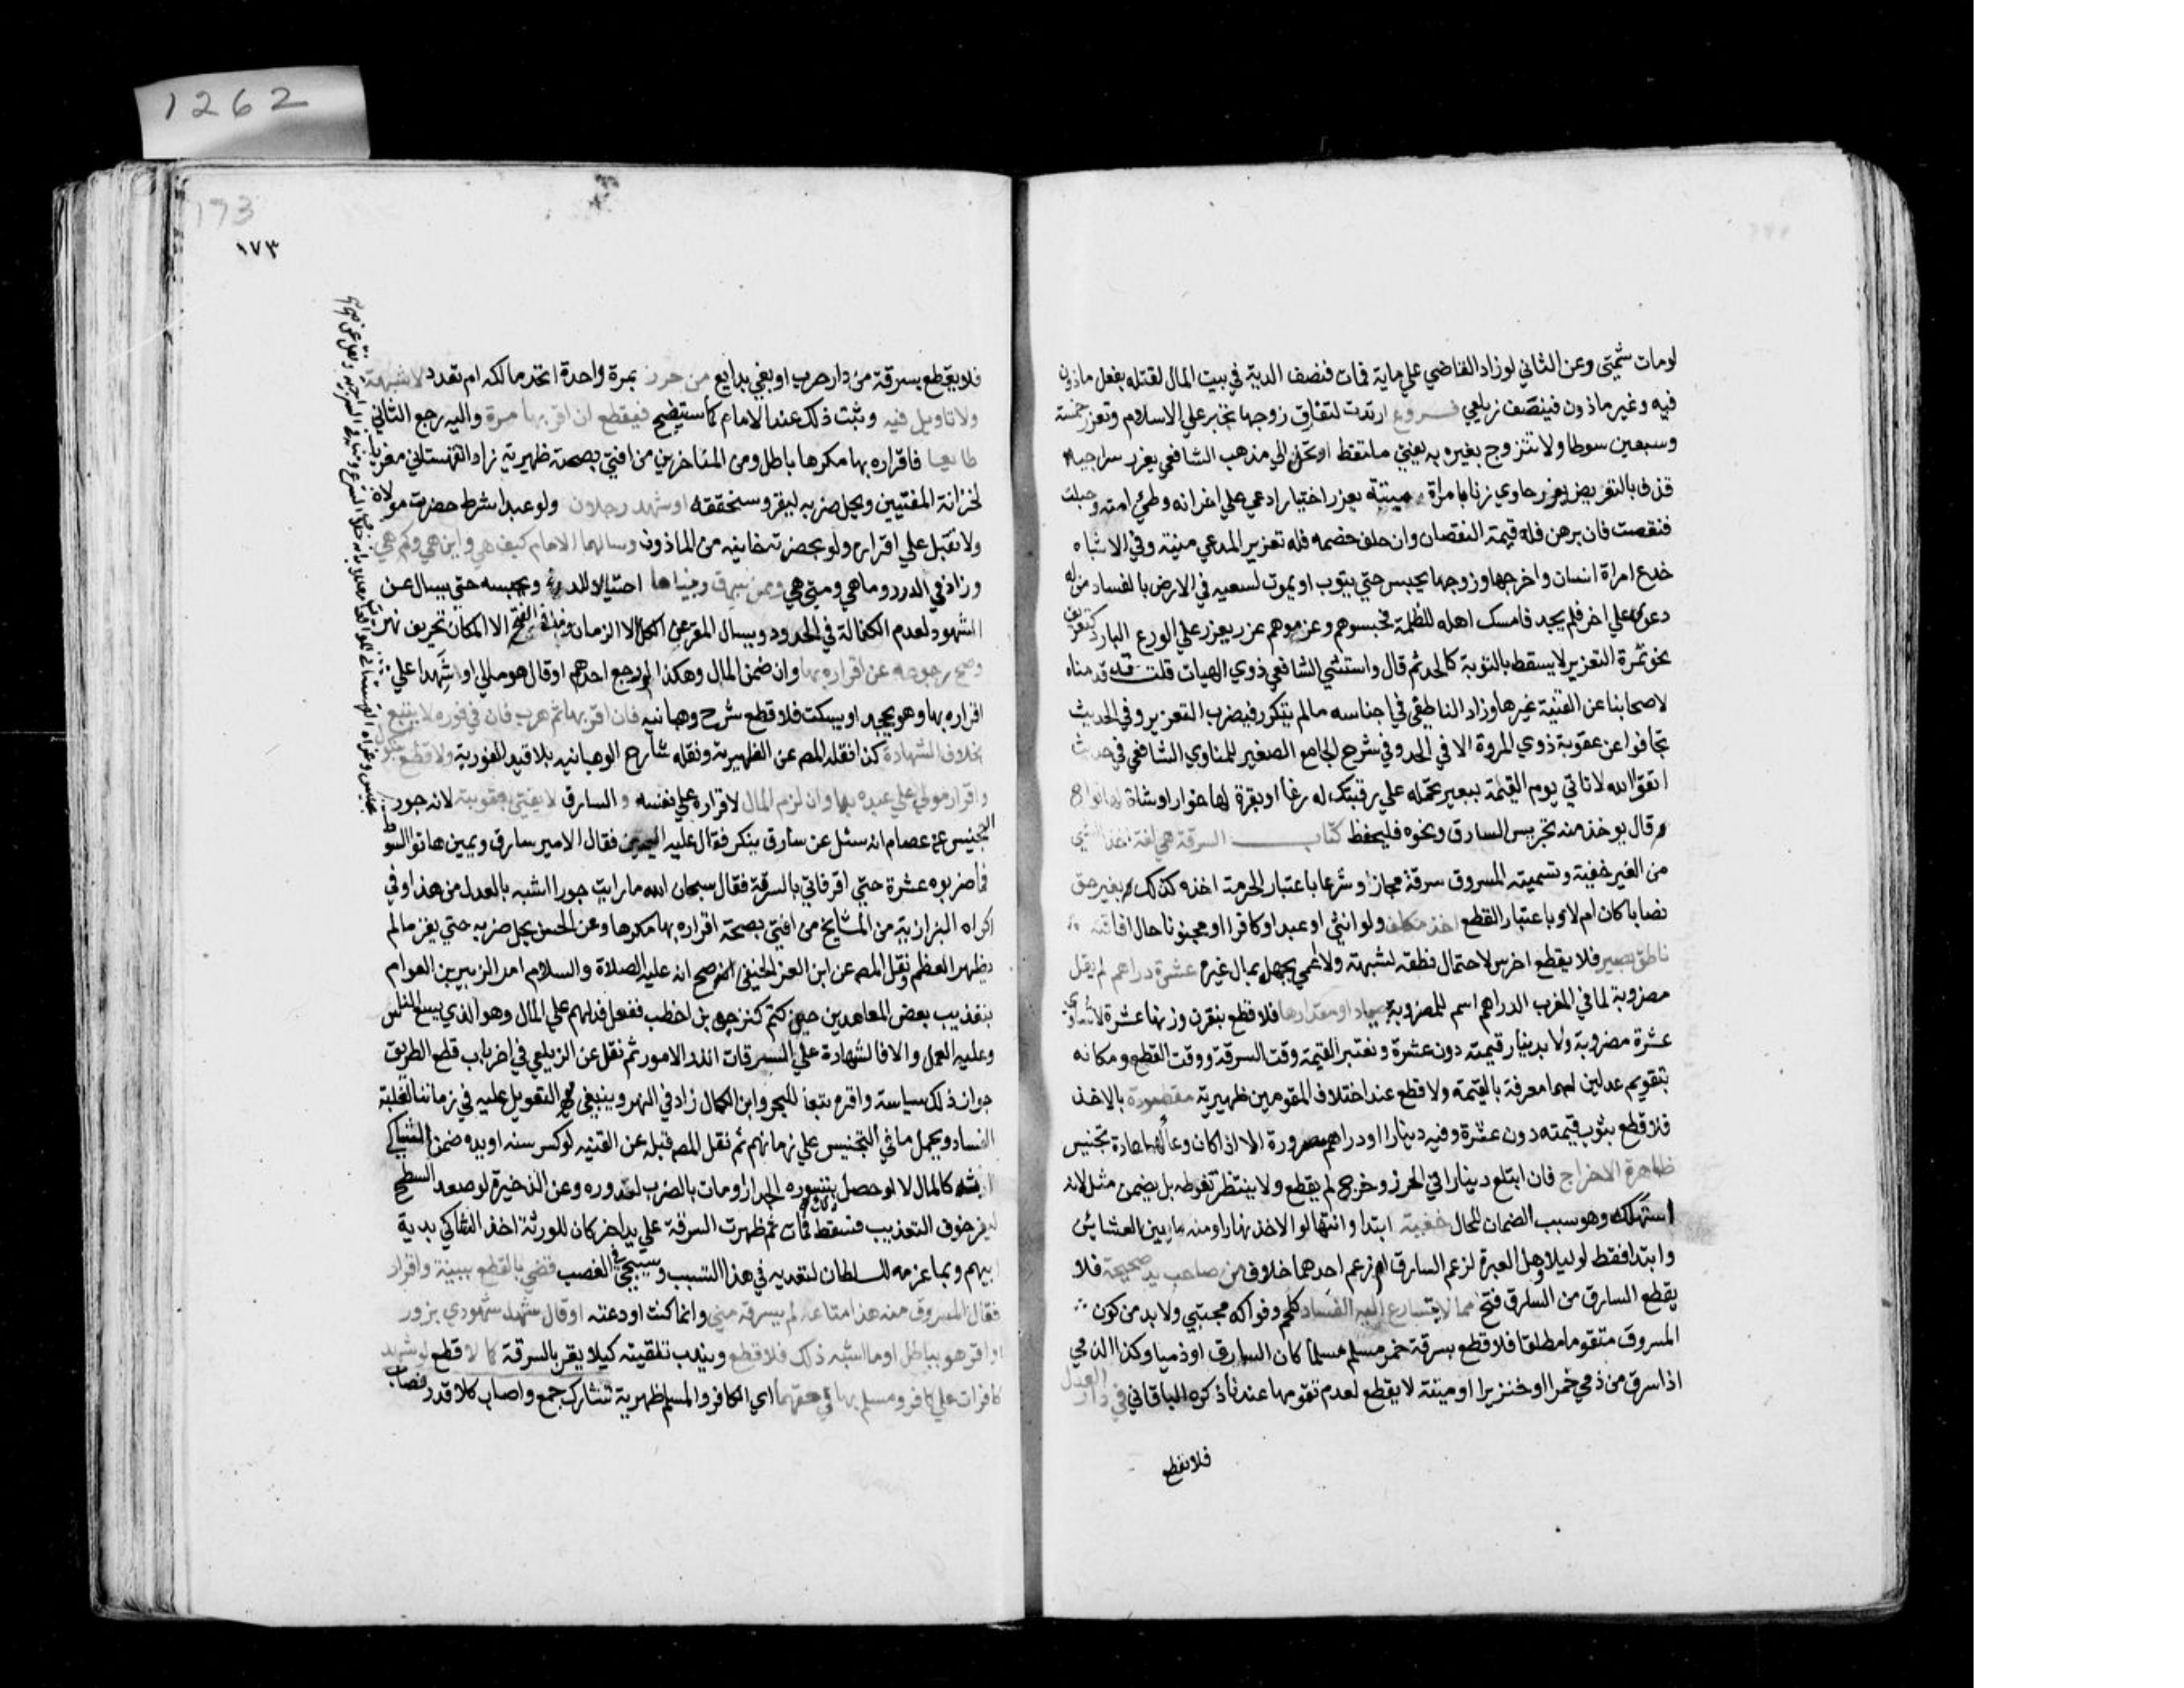 1262
لومات شمتي وعن الثاني لوزاد القاضي علي ماية فمات فنصف الدية في بيت المال لقتله بفعل ماذون
فيه وغير ماذون فينصف زيلعي فروع ارتدت لتفارق زوجها تجبر علي الاسلام وتعزر خمسة
وسبعين سوطا ولا تتزوج بغيره به يفتي ملتقط ارتحل الي مذهب الشافعي يعزر سراجيه
قذف بالتعريض يعزر حاوي زنا بامراة ميتة يعزر اختيار ادعي علي اخر انه وطئ امته وحبلت
فنقصت فان برهن فله قيمة النقصان وان حلف خصمه فله تعزير المدعي منية وفي الاشباه
خدع امراة انسان واخرجها وزوجها يحبس حتي يتوب او يموت لسعيه في الارض بالفساد من له
دعوي علي اخر فلم يجد فامسك اهله للظلمة فحبسوهم وغرموهم عزر يعزر علي الورع البارد كتعريف
نحو تمرة التعزير لا يسقط بالتوبة كالحد ثم قال واستثني الشافعي ذوي الهيات قلت قد قدمناه
لاصحابنا عن القنية غيرها وزاد الناطفي في اجناسه مالم يتكرر فيضرب التعزير وفي الحديث
تجافوا عن عقوبة ذوي المروة الا في الحد وفي شرح الجامع الصغير للمناوي الشافعي في حديث
اتقوا الله لا تاتي يوم القيمة ببعير تحمله علي رقبتك له رغا او بقرة لها خوار او شاة لها ثوا
قال يوخذ منه تجريس السارق ونحوه فليحفظ كتاب السرقة هي لغة اخذ الشي
من الغير خفية وتسمية المسروق سرقة مجاز او شرعا باعتبار الحرمة اخذه كذلك بغير حق
نصابا كان ام لا وباعتبار القطع اخذ مكلف ولو انثي او عبدا او كافرا او مجنونا حال افاقته
ناطق بصير فلا يقطع اخرس لاحتمال نطقه لشبهة ولا اعمي بجهله بمال غيره عشرة دراهم لم يقل
مضروبة لما في المغرب الدراهم اسم للمضروبة جياد او مقدارها فلا قطع بنقرة وزنها عشرة لا تساوي
عشرة مضروبة ولا بدينار قيمته دون عشرة وتعتبر القيمة وقت السرقة ووقت القطع ومكانه
بتقويم عدلين لهما معرفة بالقيمة ولا قطع عند اختلاف المقومين ظهيرية مقصودة بالاخذ
فلا قطع بثوب قيمته دون عشرة وفيه دينار او دراهم مصرورة الا اذا كان وعا لها عادة تجنيس
ظاهرة الاخراج فان ابتلع دينارا في الحرز وخرج لم يقطع ولا ينتظر تغوطه بل يضمن مثله لانه
استهلكه وهو سبب الضمان للحال خفية ابتدا وانتها لو الاخذ نهارا ومنه ما بين العشائين
وابتدا فقط لو ليلا وهل العبرة لزعم السارق ام زعم احدهما خلاف من صاحب يد صحيحة فلا
يقطع السارق من السارق فتح مما لا يتسارع اليه الفساد كلحم وفواكه مجتبي ولا بد من كون
المسروق متقوما مطلقا فلا قطع بسرقة خمر مسلم مسلما كان السارق او ذميا وكذا الذمي
اذا سرق من ذمي خمرا او خنزيرا او ميتة لا يقطع لعدم تقومها عندنا ذكره الباقاني في دار العدل
فلا يقطع
173
١٧٣
فلا يقطع بسرقة من دار حرب او بغي بدايع من حرز بمرة واحدة اتحد مالكه ام تعدد لا شبهة
ولا تاويل فيه وثبت ذلك عند الامام كما سيتضح فيقطع ان اقر بها مرة واليه رجع الثاني
طايعا فاقراره بها مكرها باطل ومن المتاخرين من افتي بصحته ظهيرية زاد القهستاني معزيا
لخزانة المفتيين ويحل ضربه ليقر وسنحققه او شهد رجلان ولو عبدا شرط حضرت مولاه
ولا تقبل علي اقراره ولو بحضرته خانيه من الماذون وسالهما الامام كيف هي واين هي وكم هي
وزاد في الدرر وما هي ومتي هي وممن سرق وبيناها احتيالا للدرء ويحبسه حتي يسال عن
الشهود لعدم الكفالة في الحدود ويسال المقر عن الكل الا الزمان وما في الفتح الا المكان تحريف نهر
وصح رجوعه عن اقراره بها وان ضمن المال وهكذا لو رجع احدهم او قال هو مالي او شهدا علي
اقراره بها وهو يجحد او يسكت فلا قطع شرح وهبانيه فان اقر بها ثم هرب فان في فوره لا يتبع
بخلاف الشهادة كذا نقله المص عن الظهيرية ونقله شارح الوهبانيه بلا قيد الفورية ولا قطع بنكول
واقرار مولي علي عبده بها وان لزم المال لاقراره علي نفسه والسارق لا يفتي بعقوبته لانه جور
تجنيس عن عصام انه سئل عن سارق ينكر فقال عليه اليمين فقال الامير سارق ويمين هاتوا السوط
فما ضربوه عشرة حتي اقر فاتي بالسرقة فقال سبحان الله ما رايت جورا اشبه بالعدل من هذا وفي
اكراه البزازية من المشايخ من افتي بصحة اقراره بها مكرها وعن الحسن يحل ضربه حتي يقر مالم
يظهر العظم ونقل المص عن ابن العز الحنفي انه صح انه عليه الصلاة والسلام امر الزبير بن العوام
بتعذيب بعض المعاهدين حين كتم كنز حيي بن اخطب ففعل فدلهم علي المال وهو الذي يسع الناس
وعليه العمل والا فالشهادة علي السرقات اندر الامور ثم نقل عن الزيلعي في اخر باب قطع الطريق
جواز ذلك سياسة واقره تبعا للبحر وابن الكمال زاد في النهر وينبغي التعويل عليه في زماننا لغلبة
الفساد ويحمل ما في التجنيس علي زمانهم ثم نقل المص قبله عن القنيه لو كسر سنه او يده ضمن الشاكي
ارشه كالمال لا لو حصل بتسوره الجدار او مات بالضرب لندوره وعن الذخيرة لو صعد السطح
ليفر خوف التعذيب فسقط فمات ثم ظهرت السرقة علي يد اخر كان للورثة اخذ الشاكي بدية
ابيهم وبما غرمه للسلطان لتعديه في هذا التسبب وسيجي في الغصب قضي بالقطع ببينة واقرار
فقال المسروق منه هذا متاعه لم يسرقه مني وانما كنت اودعته او قال شهد شهودي بزور
او اقر هو بباطل او ما اشبه ذلك فلا قطع ويندب تلقينه كيلا يقر بالسرقة كما لا قطع لو شهد
كافران علي كافر ومسلم بها في حقهما اي الكافر والمسلم ظهيرية تشارك جمع واصاب كلا قدر نصاب